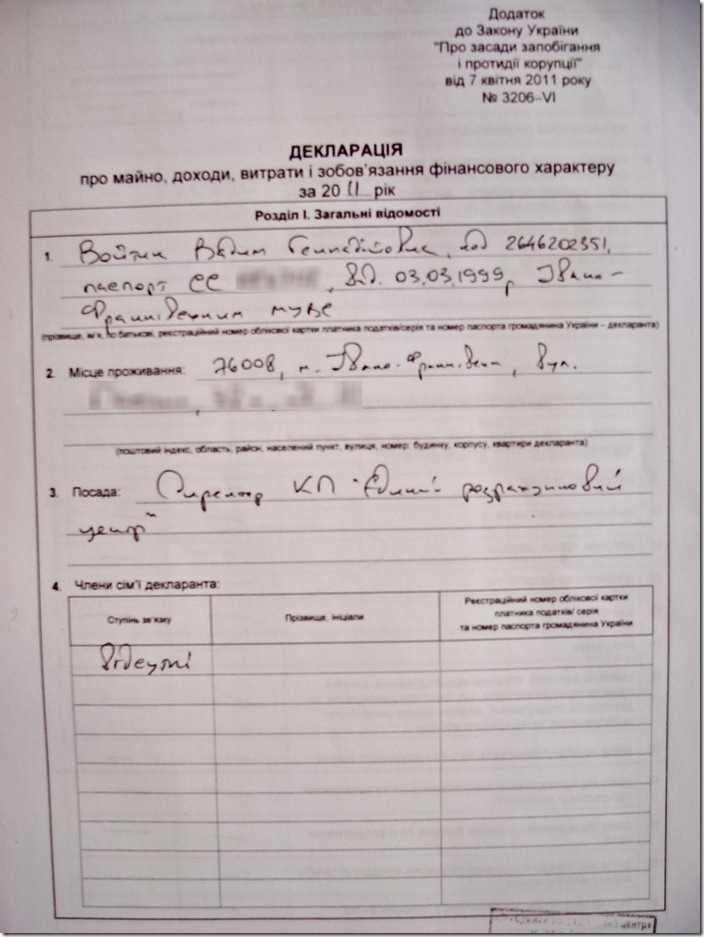 Додаток
до Закону України
"Про засади запобігання
і протидії корупції"
від 7 квітня 2011 року
№ 3206–VI
ДЕКЛАРАЦІЯ
про майно, доходи, витрати і зобов'язання фінансового характеру
за 20 11 рік
Розділ I. Загальні відомості
1. Войтик Вадим Геннадійович, код 2646202351,
паспорт СС , вид. 03.03.1999р Івано-
Франківським МУВС
(прізвище, ім'я, по батькові, реєстраційний номер облікової картки платника податків/серія та номер паспорта громадянина України – декларанта)
2. Місце проживання: 76008, м. Івано-Франківськ, вул.
(поштовий індекс, область, район, населений пункт, вулиця, номер: будинку, корпусу, квартири декларанта)
3. Посада: Директор КП "Єдиний розрахунковий
центр"
4. Члени сім'ї декларанта:
Ступінь зв'язку
Прізвище, ініціали
Реєстраційний номер облікової картки
платника податків/ серія
та номер паспорта громадянина України
Відсутні
центр